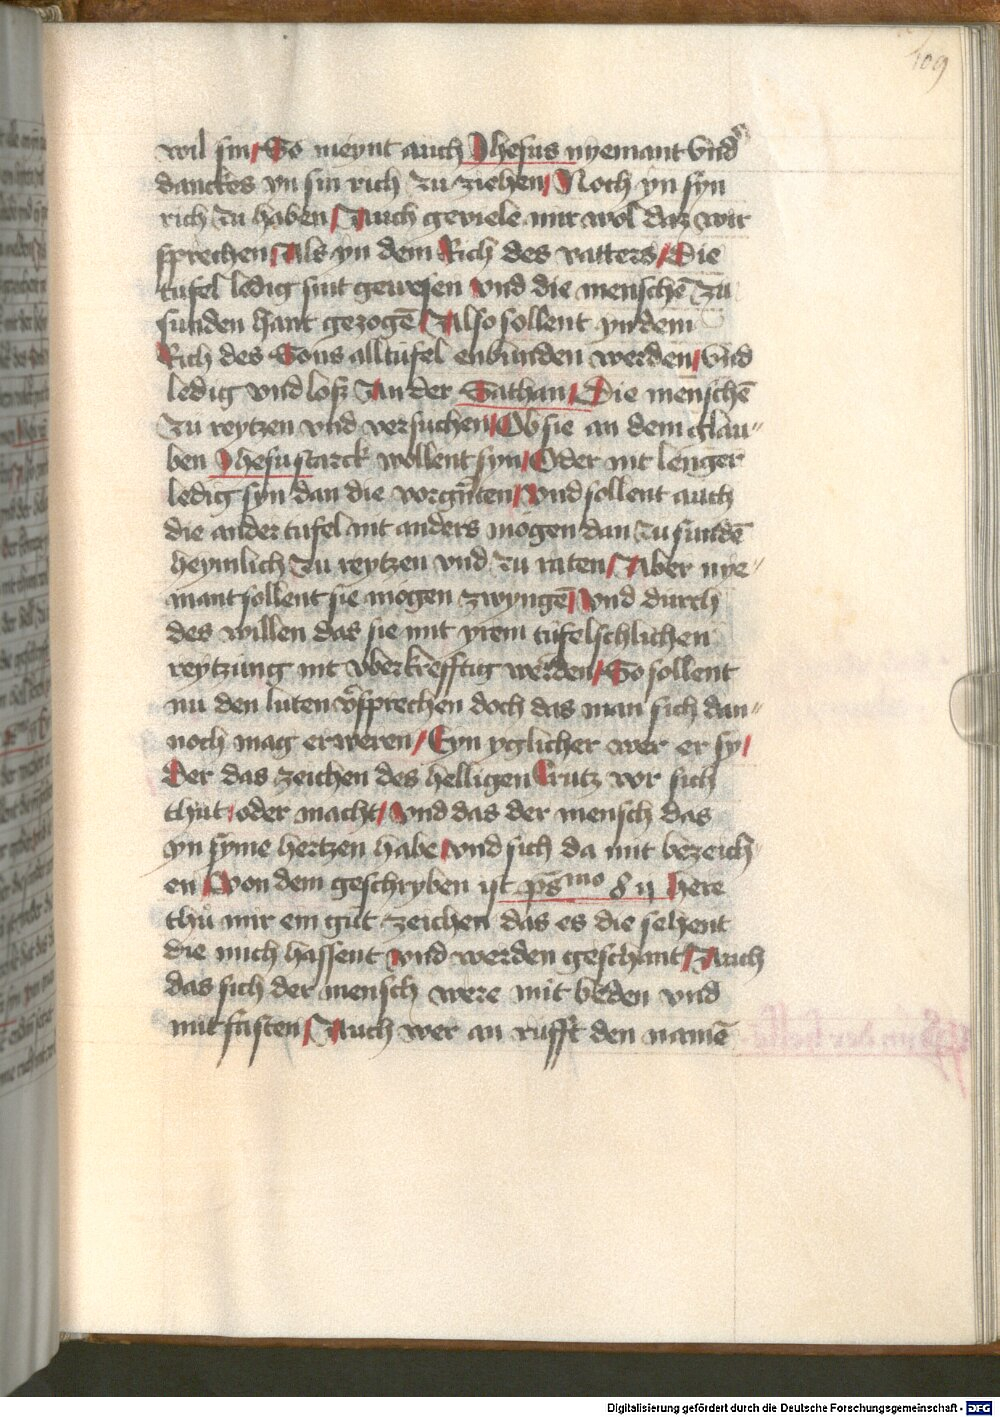 109
wil sin So meynt auch Jhesus nyemant vnd
danckes yn sin rich zu ziehen Noch yn syn
rich zu haben Auch geviele mir wol daz wir
sprechen Als yn dem Rich des vatters Die
tufel ledig sint gewesen vnd die menschē zu
sunden hant gezogē Also sollent yn dem
Rich des Sons all tufel enbunden werden vnd
ledig vnd loß An der Sathan Die menschē
zu reytzen vnd versuchen Ob sie an dem glau"
ben Jhesu starck wollent syn Oder nit lenger
ledig syn dan die vorgūten vnd sollent auch
die ander tufel nit anders mögen dan zu sundē
heymlich zu reytzen vnd zu raten Aber nye"
mant sollent sie mogen zwyngē Vnd durch
des willen das sie mit yrem tufelschlichen
reytzung nit vberkrefftig werden So sollent
nu den luten v̉sprechen doch das man sich dan"
noch mag erweren Eyn yglicher wer er sy
Der das zeichen des helligen Crutz vor sich
thut oder macht vnd das der mensch das
yn syme hertzen habe vnd sich da mit bezeich"
en Von dem geschryben ist ps̄ᵐᵒ 8 ij Here
thů mir ein gut zeichen das es die sehent
die mich hassent vnd werden geschant Auch
das sich der mensch were mit beden vnd
mit fasten Auch wer an rufft den namē
Digitalisierung gefördert durch die Deutsche Forschungsgemeinschaft - DFG